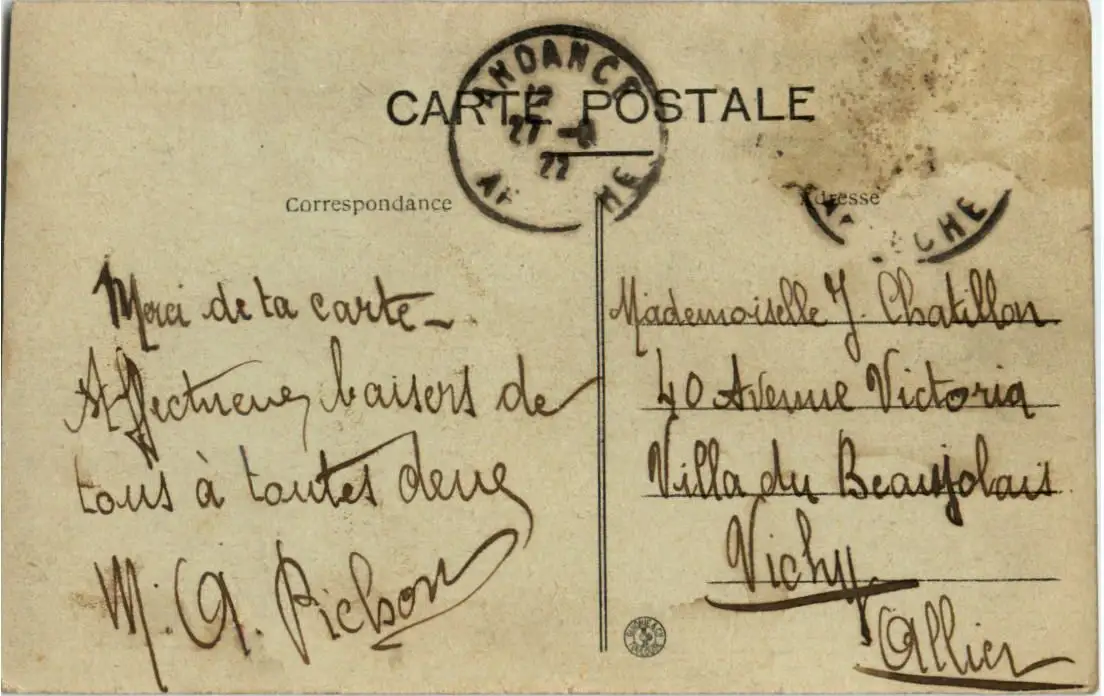 CARTE POSTALE
ANDANCE
12
27 -
22
AR HE
Correspondance
Adresse
AR CHE
Merci de ta carte_
Affectueux baisers de
tous à toutes deux
M. A.
Mademoiselle J. Chatillon
40 Avenue Victoria
Villa du Beaujolais
Vichy
Allier